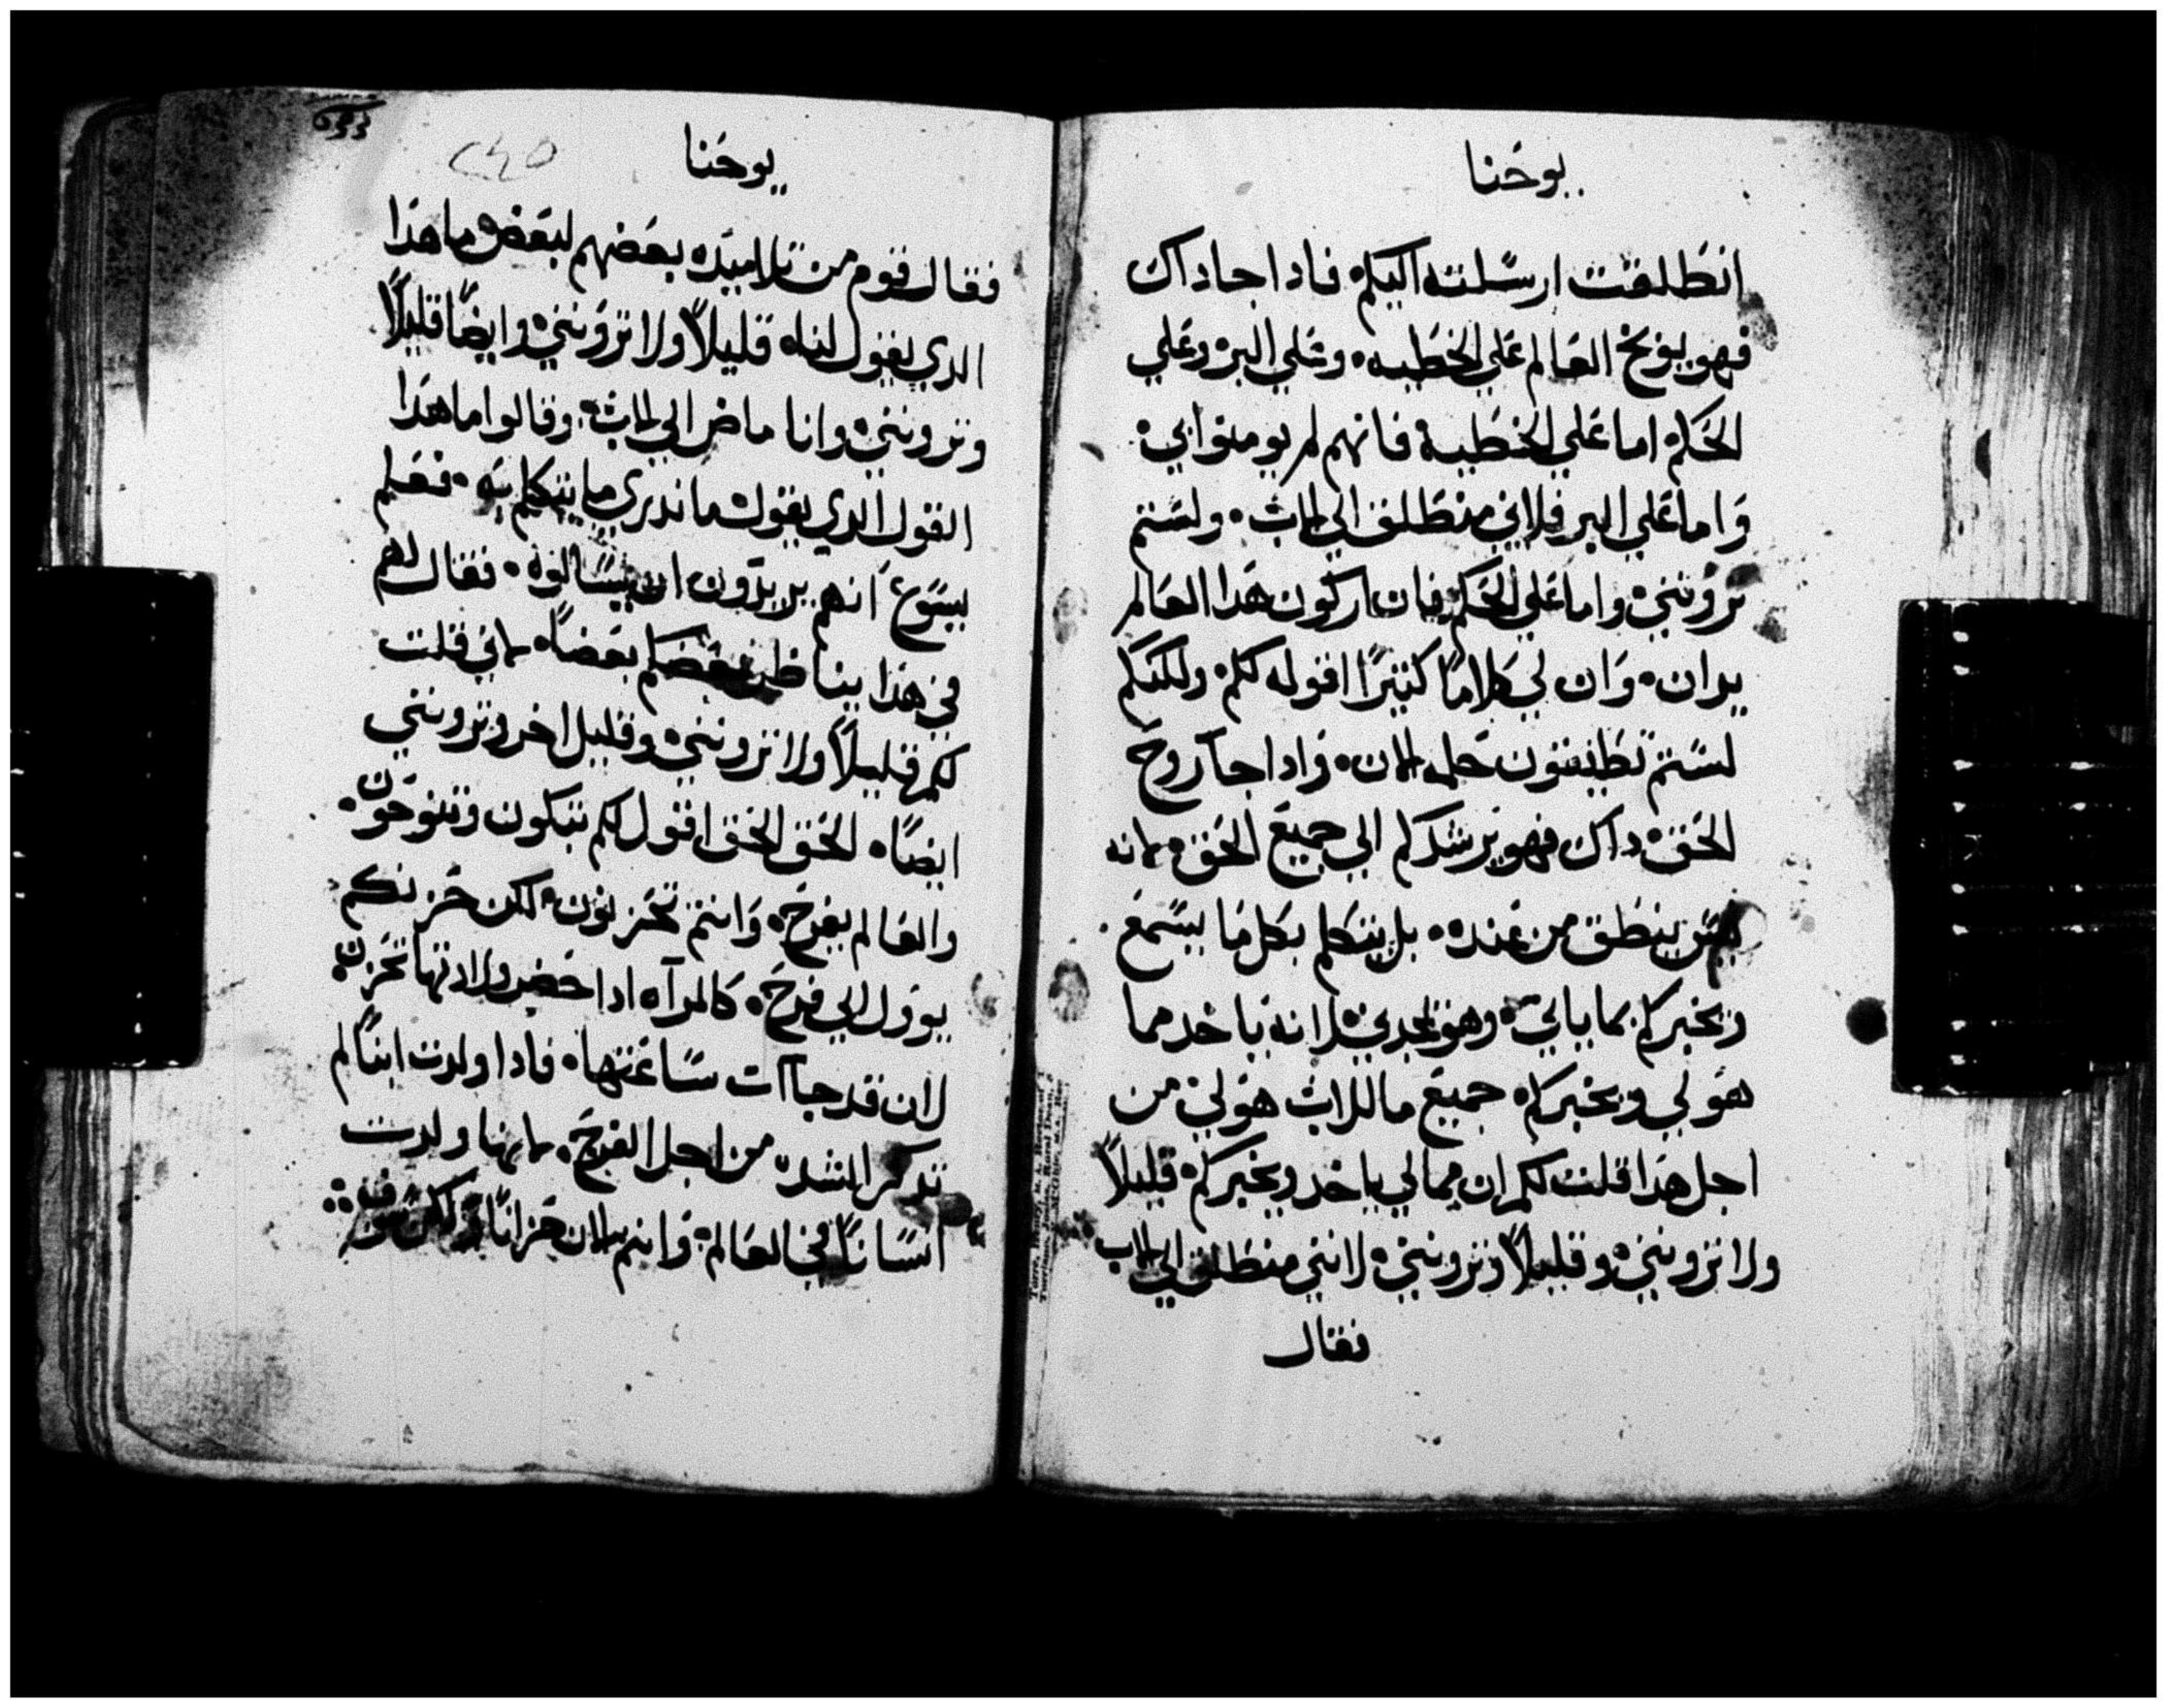 يوحنا
انطلقت ارسلته اليكم فادا جا داك
فهو يوبخ العالم علي الخطيه وعلي البر وعلي
الحكم اما علي الخطية فانهم لم يومنوا بي
واما علي البر فلاني منطلق الي الاب ولستم
تروننى واما علي الحكم فان اركون هدا العالم
يدان وان لي كلاما كثيرا اقوله لكم ولكنكم
لستم تطيقون حمله الان وادا جآ روح
الحق داك فهو يرشدكم الي جميع الحق لانه
ينطق من عنده بل يتكلم بكل ما يسمع
ويخبركم بما ياتي وهو يمجدني لانه ياخد مما
هو لي ويخبركم جميع ما للاب هو لي من
اجل هدا قلت لكم ان مما لي ياخد ويخبركم قليلاً
ولا تروننى وقليلاً وتروننى لاننى منطلق الي الاب
فقال
يوحنا
٢٤٥
فقال قوم من تلاميده بعضهم لبعض ما هدا
الدي يقول لنا قليلاً ولا تروننى وايضاً قليلاً
وتروننى وانا ماض الي الاب وقالوا ما هدا
القول الدي يقول ما ندري ما يتكلم به فعلم
يسوع انهم يريدون ان يسالوه فقال لهم
في هدا يناظر بعضكم بعضاً لاني قلت
لكم قليلاً ولا تروننى وقليل اخر وتروننى
ايضاً الحق الحق اقول لكم تبكون وتنوحون
والعالم يفرح وانتم تحزنون لكن حزنكم
يوول الي فرح كالمرآه ادا حضر ولادتها تحزن
لان قد جاآت ساعتها فادا ولدت ابناً لم
تدكر الشده من اجل الفرح لانها ولدت
انساناً في العالم وانتم الان حزانا